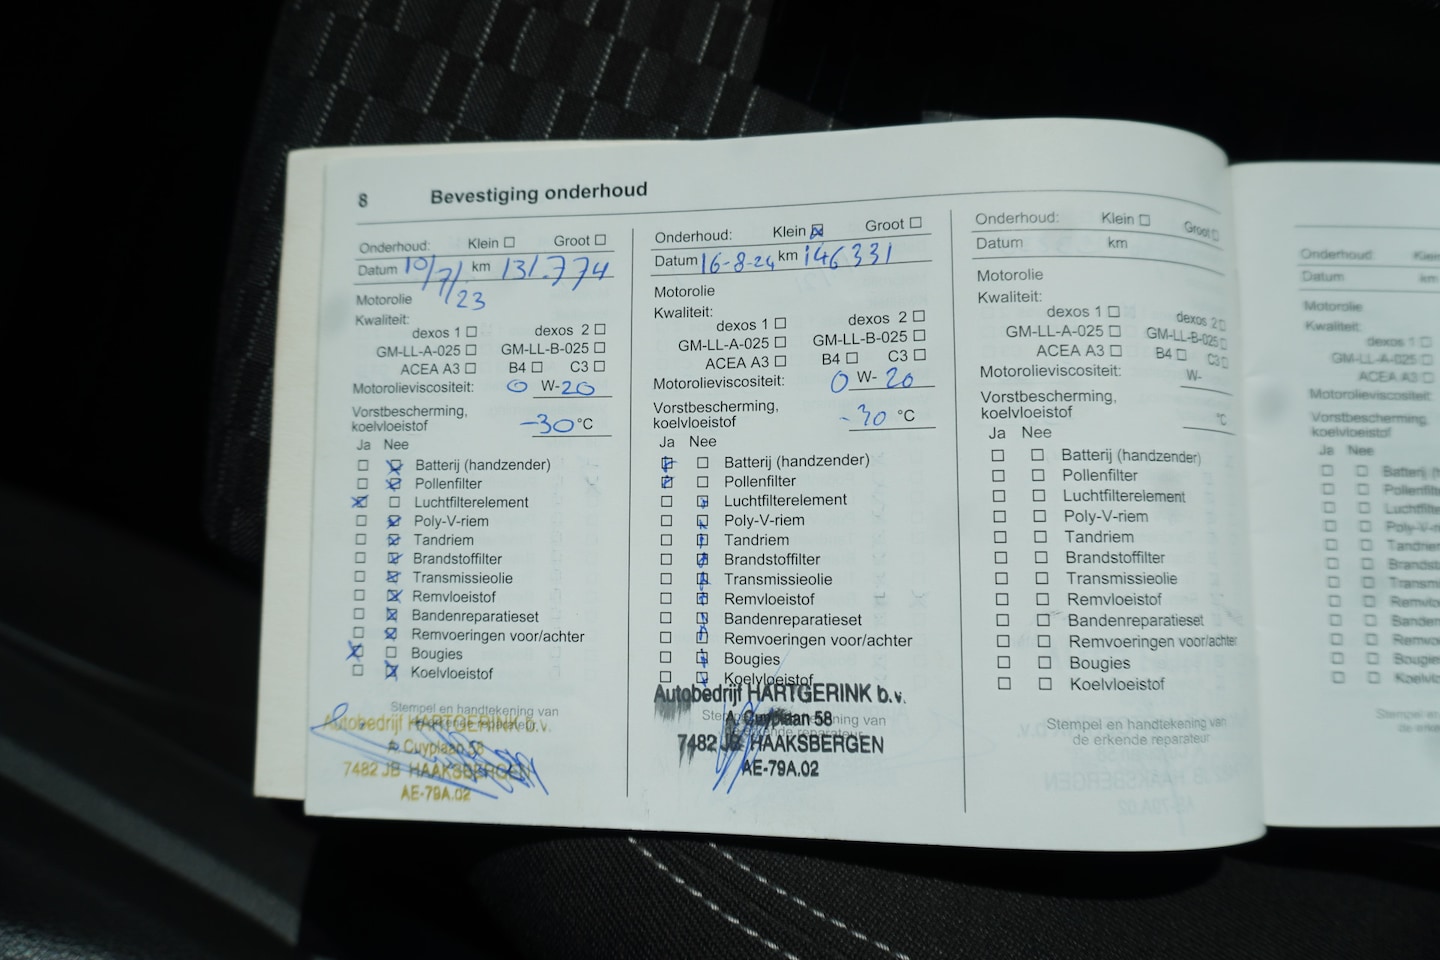 8 Bevestiging onderhoud
Onderhoud: Klein ☐ Groot ☐
Datum 10/7/23 km 131.774
Motorolie
Kwaliteit:
dexos 1 ☐ dexos 2 ☐
GM-LL-A-025 ☐ GM-LL-B-025 ☐
ACEA A3 ☐ B4 ☐ C3 ☐
Motorolieviscositeit: 0 W-20
Vorstbescherming,
koelvloeistof -30 °C
Ja Nee
☐ ☒ Batterij (handzender)
☐ ☒ Pollenfilter
☒ ☐ Luchtfilterelement
☐ ☒ Poly-V-riem
☐ ☒ Tandriem
☐ ☒ Brandstoffilter
☐ ☒ Transmissieolie
☐ ☒ Remvloeistof
☐ ☒ Bandenreparatieset
☐ ☒ Remvoeringen voor/achter
☒ ☐ Bougies
☐ ☒ Koelvloeistof
Stempel en handtekening van
Autobedrijf HARTGERINK b.v.
A. Cuyplaan 58
7482 JB HAAKSBERGEN
AE-79A.02
Onderhoud: Klein ☒ Groot ☐
Datum 16-8-24 km 146331
Motorolie
Kwaliteit:
dexos 1 ☐ dexos 2 ☐
GM-LL-A-025 ☐ GM-LL-B-025 ☐
ACEA A3 ☐ B4 ☐ C3 ☐
Motorolieviscositeit: 0 W- 20
Vorstbescherming,
koelvloeistof -30 °C
Ja Nee
☒ ☐ Batterij (handzender)
☒ ☐ Pollenfilter
☐ ☒ Luchtfilterelement
☐ ☒ Poly-V-riem
☐ ☒ Tandriem
☐ ☒ Brandstoffilter
☐ ☒ Transmissieolie
☐ ☒ Remvloeistof
☐ ☒ Bandenreparatieset
☐ ☒ Remvoeringen voor/achter
☐ ☒ Bougies
☐ ☒ Koelvloeistof
Autobedrijf HARTGERINK b.v.
A. Cuyplaan 58
7482 JB HAAKSBERGEN
AE-79A.02
Onderhoud: Klein ☐ Groot ☐
Datum km
Motorolie
Kwaliteit:
dexos 1 ☐ dexos 2 ☐
GM-LL-A-025 ☐ GM-LL-B-025 ☐
ACEA A3 ☐ B4 ☐ C3 ☐
Motorolieviscositeit: W-
Vorstbescherming,
koelvloeistof °C
Ja Nee
☐ ☐ Batterij (handzender)
☐ ☐ Pollenfilter
☐ ☐ Luchtfilterelement
☐ ☐ Poly-V-riem
☐ ☐ Tandriem
☐ ☐ Brandstoffilter
☐ ☐ Transmissieolie
☐ ☐ Remvloeistof
☐ ☐ Bandenreparatieset
☐ ☐ Remvoeringen voor/achter
☐ ☐ Bougies
☐ ☐ Koelvloeistof
Stempel en handtekening van
de erkende reparateur
Onderhoud:
Datum km
Motorolie
Kwaliteit:
dexos 1 ☐
GM-LL-A-025 ☐
ACEA A3 ☐
Motorolieviscositeit:
Vorstbescherming,
koelvloeistof
Ja Nee